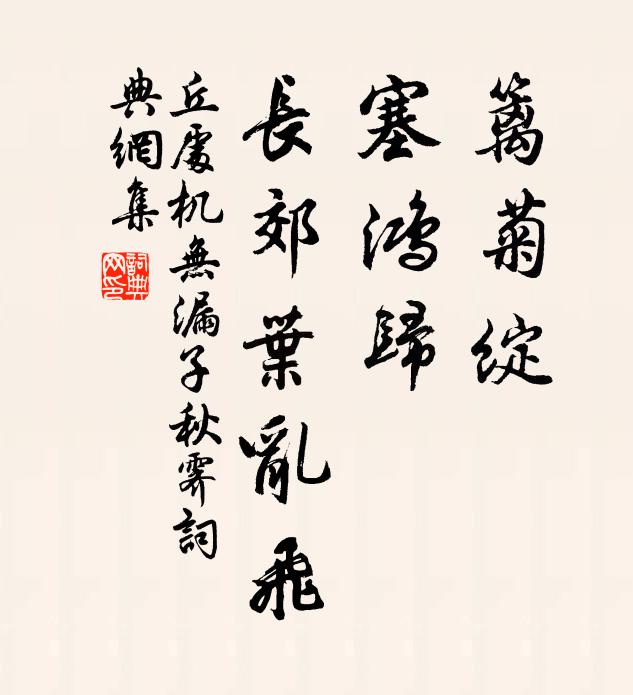 籬菊綻
塞鴻歸
長郊葉亂飛
丘處机無漏子秋霽詞
典網集
詞典
网印